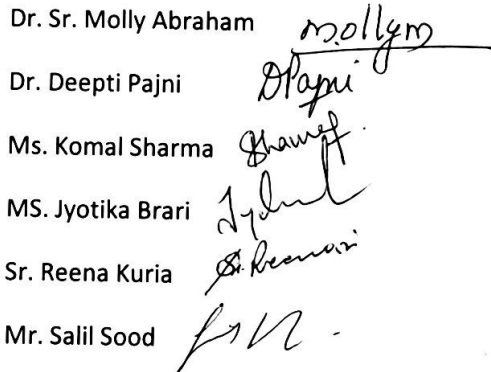 Dr. Sr. Molly Abraham mollym
Dr. Deepti Pajni DPajni
Ms. Komal Sharma
MS. Jyotika Brari
Sr. Reena Kuria
Mr. Salil Sood